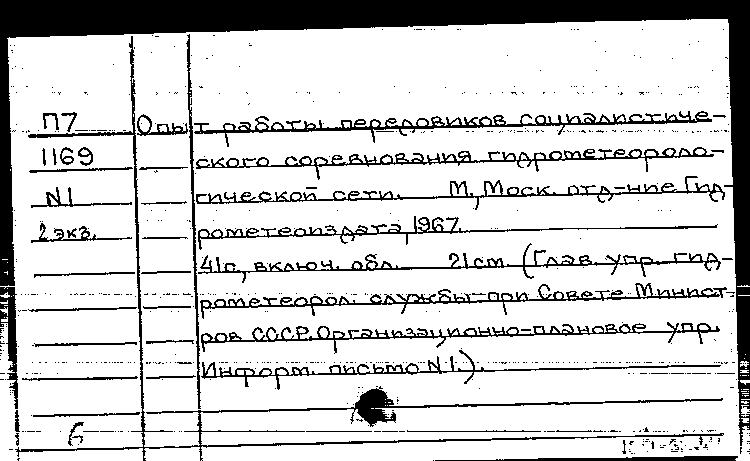 П7 Опыт работы передовиков социалистиче-
1169 ского соревнования гидрометеороло-
N1 гической сети. М., Моск. отд-ние Гид-
2 экз. рометеоиздата, 1967.
41с., включ. обл. 21см (Глав. упр. гид-
рометеорол. службы при Совете Минист-
ров СССР. Организационно-плановое упр.
Информ. письмо N1.).
6